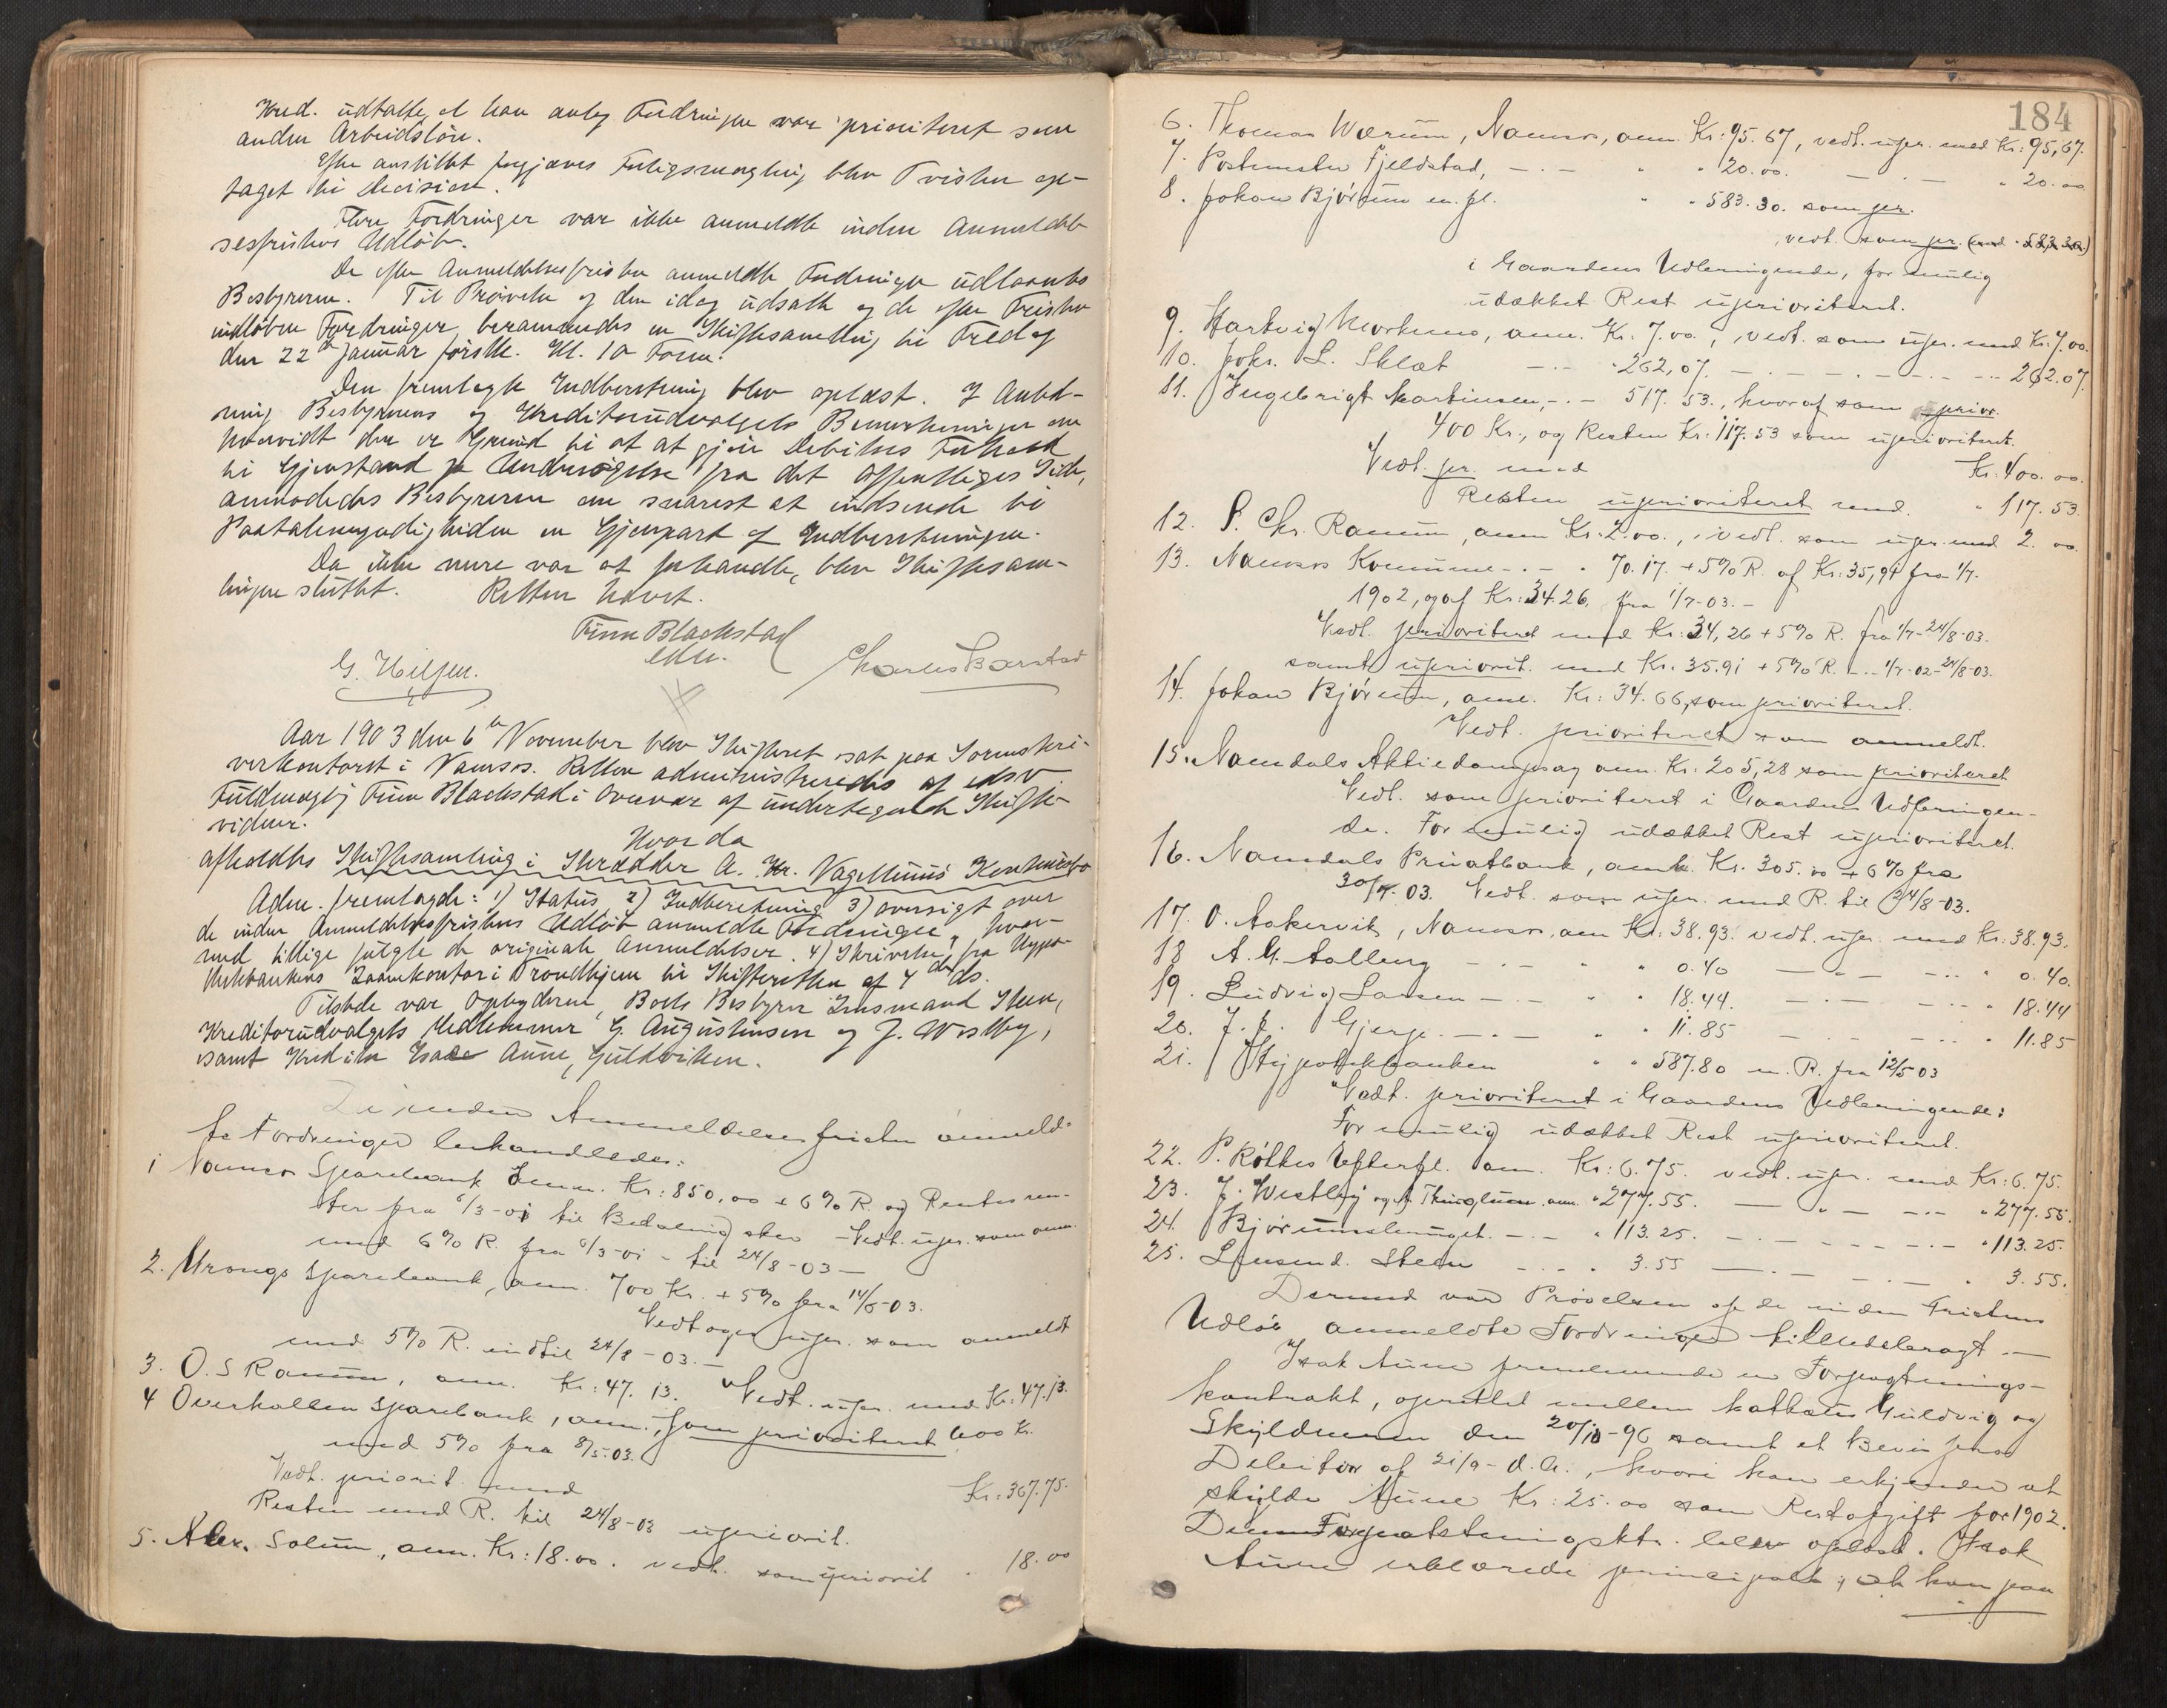 Kred. udtalte, at han antog Fordringen var prioriteret som
anden Arbeidsløn.
Efter anstillet forgjæves Forligsmægling blev Tvisten op-
taget til Decision.
Flere Fordringer var ikke anmeldte inden Anmeldel-
sesfristens Udløb.
De efter Anmeldelsesfristen anmeldte Fordringer udlaantes
Bestyreren. Til Prøvelse af den idag udsatte og de efter Fristen
indløbne Fordringer, berammedes en Skiftesamling til Fredag
den 22de Januar førstk. Kl. 10 Form.
Den fremlagte Indberetning blev oplæst. I Anled-
ning Bestyrerens og Kreditorudvalgets Bemærkninger om
hvorvidt der er Grund til at gjøre Debitors Forhold
til Gjenstand for Undersøgelse fra det Offentliges Side,
anmodedes Bestyreren om snarest at indsende til
Paatalemyndigheden en Gjenpart af Indberetningen.
Da ikke mere var at forhandle, blev Skiftesam-
lingen sluttet. Retten hævet.
Finn Blackstad
edsv.
G. Hilsen. Charles Barstad
Aar 1903 den 6te November blev Skifteret sat paa Sorenskri-
verkontoret i Namsos. Retten administreredes af edsv.
Fuldmægtig Finn Blackstad i Overvær af undertegnede Skifte-
vidner.
Hvorda
afholdtes Skiftesamling i Skrædder A. Kr. Vagellunns Konkursbo
Adm. fremlagde: 1) Status, 2) Indberetning 3) oversigt over
de inden Anmeldelsesfristens Udløb anmeldte Fordringer, hvor-
med tillige fulgte de originale Anmeldelser. 4) Skrivelse fra Hypo-
thekbankens Laanekontor i Trondhjem til Skifteretten af 4de ds.
Tilstede var Opbyderen, Boets Bestyrer Lensmand Steen,
Kreditorudvalgets Medlemmer G. Augustinsen og J. Westby,
samt Kreditor Isak Aune, Guldviken.
De inden Anmeldelsesfristen anmeld-
te Fordringer behandledes:
1 Namsos Sparebank anm. Kr: 850,00 + 6% R. og Rentes ren-
ter fra 6/3-01 til Betaling sker – Vedt. uper. som anm.
med 6% R. fra 6/3-01 – til 24/8-03 –
2. Mrongs Sparebank, anm. 700 Kr. + 5% fra 14/5-03.
Vedtoges uper. som anmeldt
med 5% R. indtil 24/8-03. –
3. O. S Ranum, anm. Kr: 47. 13. Vedt. uper. med Kr: 47.13.
4 Overhallen Sparebank, anm., som prioriteret 600 Kr.
med 5% fra 8/5-03.
Vedt. priorit. med Kr: 367.75.
Resten med R. til 24/8-03 upriorit.
5. Alex. Solum, anm. Kr: 18.00. vedt. som upriorit " 18.00
184
6. Thomas Wærum, Namsos, anm. Kr: 95. 67, vedt. uper. med Kr: 95,67.
7. Postmester Fjeldstad, – . – " " 20.00. – . – " 20.00
8. Johan Bjørum m. fl. " " 583. 30. som pr.
vedt. som pr. (med " 583.30.)
i Gaardens Udbringende, for mulig
udækket Rest uprioriteret.
9. Hartvig Morkmo, anm. Kr. 7.00, vedt. som uper. med Kr. 7.00.
10. Johs. L. Sklæt – . – " 262,07. – . – . – 262.07.
11. Ingebrigt Martinsen, – . – 517. 53., hvoraf som prior.
400 Kr., og Resten Kr. 117.53 som uprioriteret.
Vedt. pr. med Kr. 400.00.
Resten uprioriteret med " 117.53.
12. P. Chr. Ranum, anm Kr. 2.00., vedt. som uper. med 2.00.
13. Namsos Kommune – . – " 70.17. + 5% R. af Kr: 35,91 fra 1/7-
1902, og af Kr: 34.26. fra 1/7-03. –
Vedt. prioriteret med Kr: 34,26 + 5% R. fra 1/7-24/8-03.
samt upriorit. med Kr. 35.91 + 5% R. – . – 1/7-02-24/8-03.
14. Johan Bjørum, anm. Kr: 34. 66, som prioriteret.
Vedt. prioriteret som anmeldt.
15. Namdals Aktiedampsag anm. Kr. 205,28 som prioriteret
Vedt. som prioriteret i Gaardens Udbringen-
de. For mulig udækket Rest uprioriteret.
16. Namdals Privatbank, anm. Kr. 305.00 + 6% fra
30/7-03. Vedt. som uper. med R. til 24/8-03.
17. O. Aakervik, Namsos, anm Kr: 38.93. vedt. uper. med Kr: 38.93.
18 A. G. Aalberg – . – " " 0.40 – . – " 0.40.
19. Ludvig Larsen – . – " " 18.44. – . – " 18.44
20. J. J. Gjerge – . – " " 11.85 – . – " 11.85
21. Hypothekbanken " " 587.80 m. R. fra 12/5 03
Vedt. prioriteret i Gaardens Udbringende:
For mulig udækket Rest uprioriteret.
22. P. Røthes Efterfl. anm. Kr: 6.75. vedt. uper. med Kr: 6.75.
23. J. Westby og A. Thinglum, anm. " 277.55. – " – " 277.55.
24. Bjørumslauget. – . – " 113.25. – . – " 113.25.
25. Lensmd. Steen – . – " 3.55 – . – " 3.55.
Dermed var Prøvelsen af de inden Fristens
Udløb anmeldte Fordringer tilendebragt. –
Isak Aune fremlemmede en Forpagtnings-
kontrakt, oprettet mellem Guldvig og
Skyldneren den 20/10-96 samt et Bevis fra
Debitor af 21/9 - d. A., hvori han erkjender at
skylde Aune Kr: 25.00 som Restafgift for 1902.
Denne Forpagtningsktr. blev oplæst. Isak
Aune erklærede principalt, at han paa